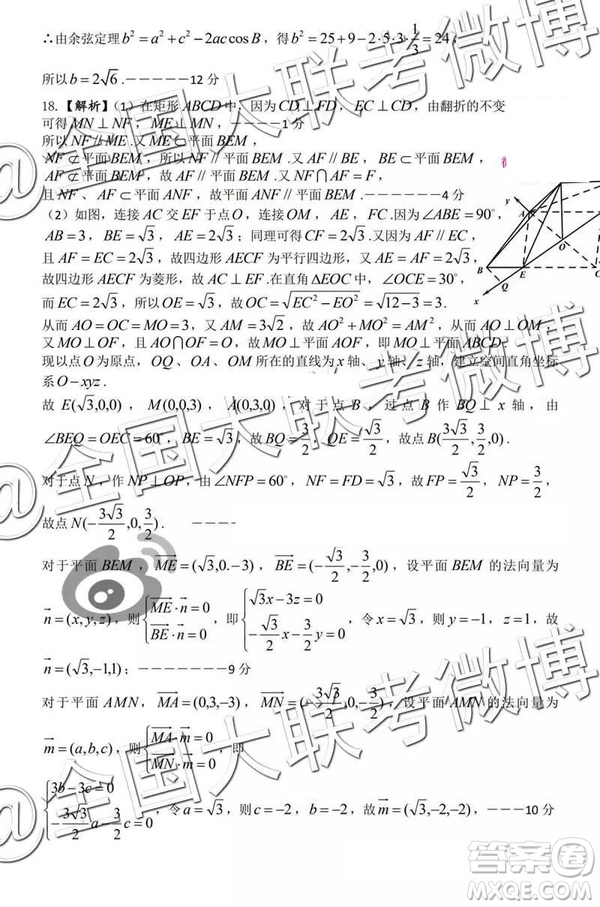 ∴由余弦定理b²=a²+c²−2accosB，得b²=25+9−2·5·3·1/3=24，
所以b=2√6.－－－－－12分
18.【解析】（1）在矩形ABCD中，因为CD⊥FD，EC⊥CD，由翻折的不变
可得MN⊥NF，ME⊥MN，－－－－－1分
所以NF∥ME.又因为
NF⊄平面BEM，ME⊂平面BEM，
所以NF∥平面BEM.又AF∥BE，BE⊂平面BEM，
AF⊄平面BEM，故AF∥平面BEM.又NF∩AF=F，
且NF、AF⊂平面ANF，故平面ANF∥平面BEM.－－－－－－4分
（2）如图，连接AC交EF于点O，连接OM，AE，FC.因为∠ABE=90°，
AB=3，BE=√3，AE=2√3；同理可得CF=2√3.又因为AF∥EC，
且AF=EC=2√3，故四边形AECF为平行四边形，又AE=EC=2√3，
故四边形AECF为菱形，故AC⊥EF.在直角ΔEOC中，∠OCE=30°，
而EC=2√3，所以OE=√3，故OC=√(EC²−EO²)=√(12−3)=3.
从而AO=OC=MO=3，又AM=3√2，故AO²+MO²=AM²，从而AO⊥OM.
又MO⊥EF，且AO∩OF=O，故MO⊥平面ADF，即MO⊥平面ABCD.
现以点O为原点，OQ、OA、OM所在的直线为x轴、y轴、z轴，建立空间直角坐标
系O−xyz.
故E(√3,0,0)，M(0,0,3)，A(0,3,0)，对于点B，过点B作BQ⊥x轴，由
∠BEQ=∠OEC=60°，BE=√3，故BQ=3/2，QE=√3/2，故点B(3√3/2,3/2,0).
对于点N，作NP⊥OP，由∠NFP=60°，NF=FD=√3，故FP=√3/2，NP=3/2，
故点N(−3√3/2,0,3/2). －－－－
对于平面BEM，ME=(√3,0,−3)，BE=(−√3/2,−3/2,0)，设平面BEM的法向量为
n=(x,y,z)，则{ME·n=0 BE·n=0，即{√3x−3z=0 −√3/2x−3/2y=0，令x=√3，则y=−1，z=1，故
n=(√3,−1,1)；－－－－－－－9分
对于平面AMN，MA=(0,3,−3)，MN=(−3√3/2,0,−3/2)，设平面AMN的法向量为
m=(a,b,c)，则{MA·m=0 MN·m=0，即
{3b−3c=0 −3√3/2a−3/2c=0，令a=√3，则c=−2，b=−2，故m=(√3,−2,−2)，－－－－10分
A
B
O
Q
E
x
y
@全国大联考微博
@全国大联考微博
@全国大联考微博
答案圈
MXQE.COM